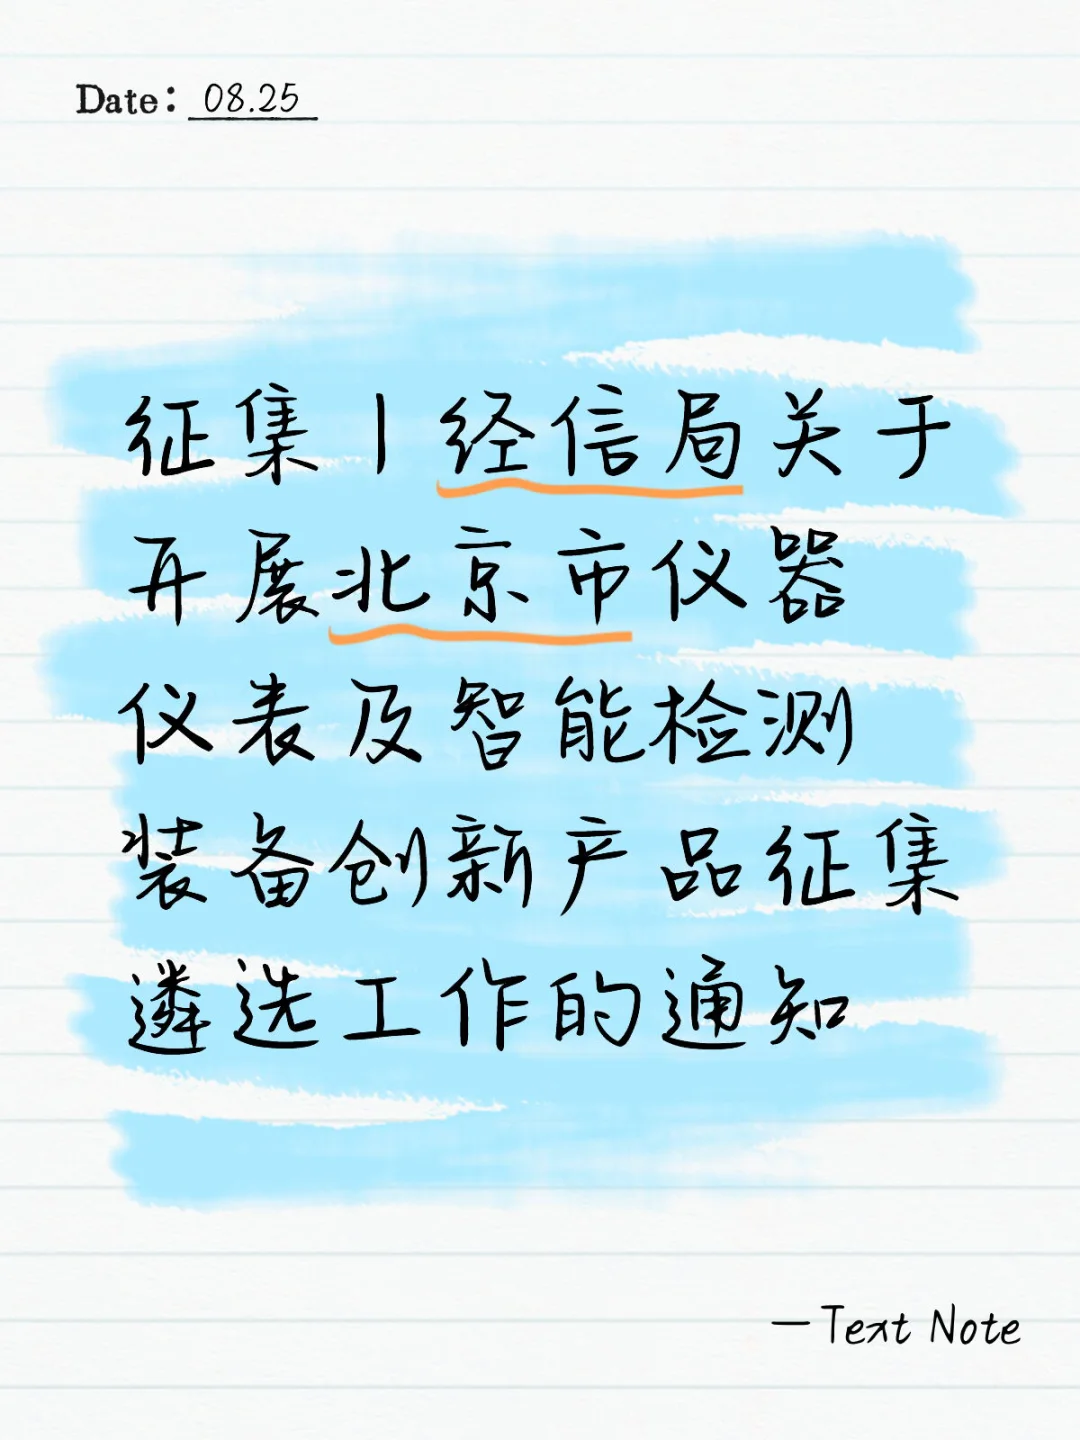 Date: 08.25
征集丨经信局关于
开展北京市仪器
仪表及智能检测
装备创新产品征集
遴选工作的通知
—Text Note